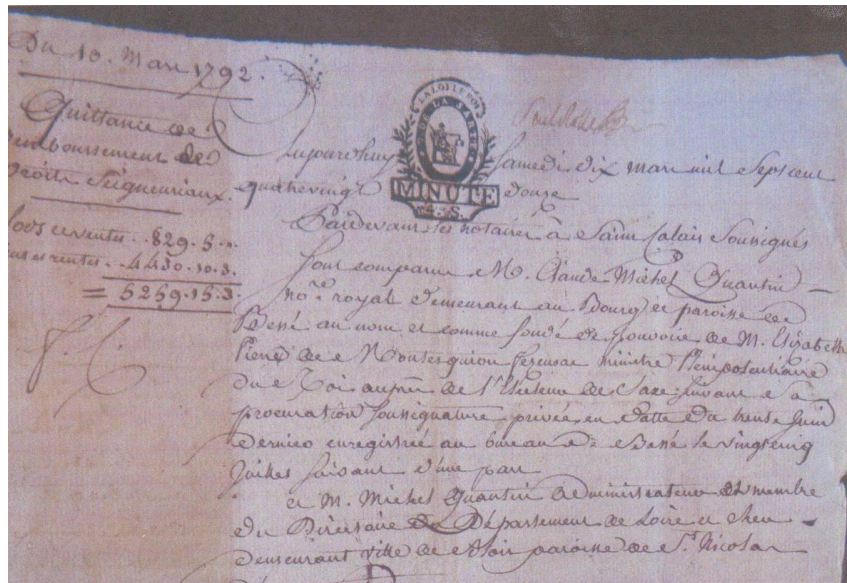 Du 10. Mars 1792.
Quittance de
remboursement de
Droits Seigneuriaux.
Lods et ventes .. 829.5.».
rentes .. 4430.10.3.
= 5259.15.3.
LA LOI LE ROI
DE LA SARTHE
MINUTE
4.S.
Aujourdhuy Samedi dix mars mil Sept cent
quatrevingt douze
Pardevant les notaires à Saint Calais Soussignés
Sont comparus M. Claude Michel Quantin —
no.re royal demeurant au Bourg et paroisse de
Bessé au nom et comme fondé de pouvoir de M. Elizabeth
Pierre de Montesquiou fezensac ministre Plenipotentiaire
du Roi auprès de l'Electeur de Saxe, suivant Sa
procuration Soussignature privée en datte du trente Juin
dernier enregistrée au bureau de Bessé le vingt cinq
Juillet suivant d'une part
et M. Michel Quantin administrateur et membre
du Directoire du Département de Loire et cher —
demeurant ville de Blois paroisse de St. Nicolas